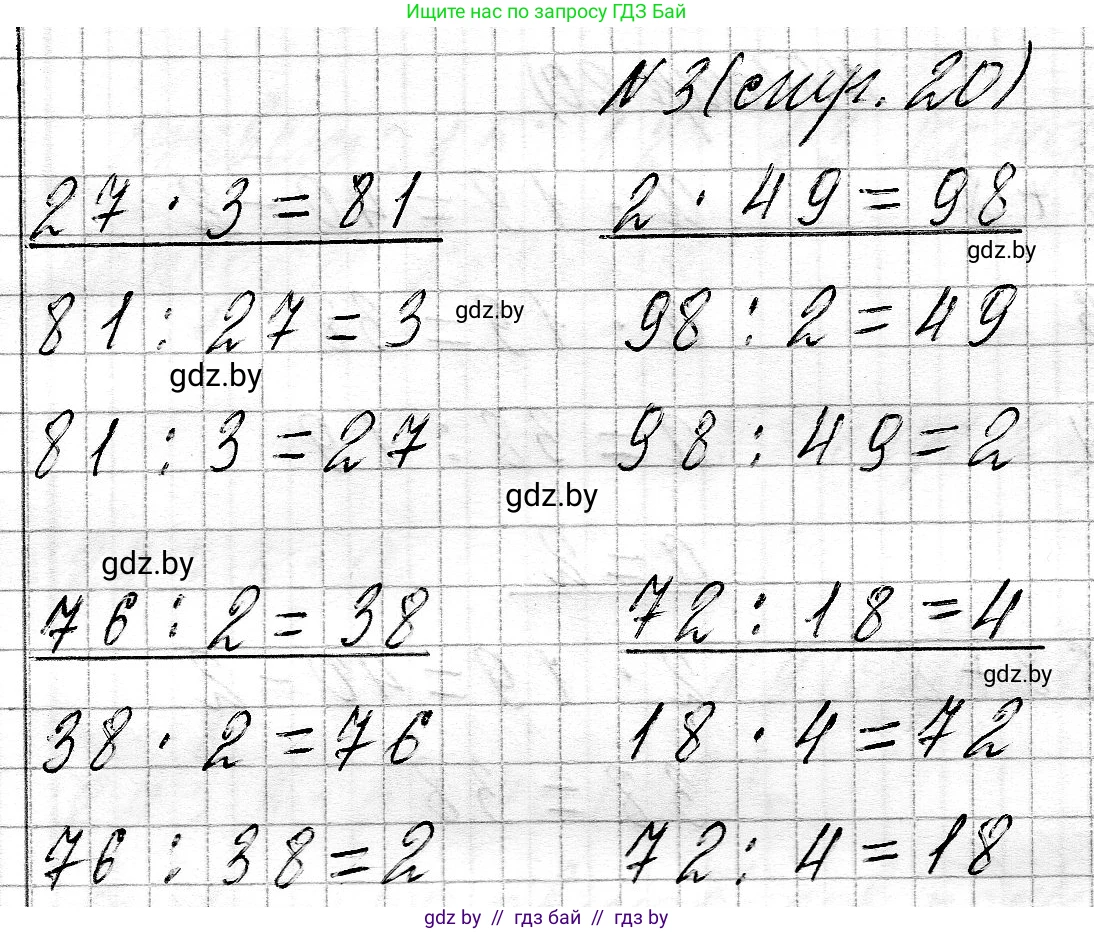 Ищите нас по запросу ГДЗ Бай
№ 3 (стр. 20)
27 · 3 = 81
81 : 27 = 3
81 : 3 = 27
2 · 49 = 98
98 : 2 = 49
98 : 49 = 2
76 : 2 = 38
38 · 2 = 76
76 : 38 = 2
72 : 18 = 4
18 · 4 = 72
72 : 4 = 18
gdz.by
gdz.by
gdz.by
gdz.by
gdz.by
gdz.by
gdz by // гдз бай // гдз by